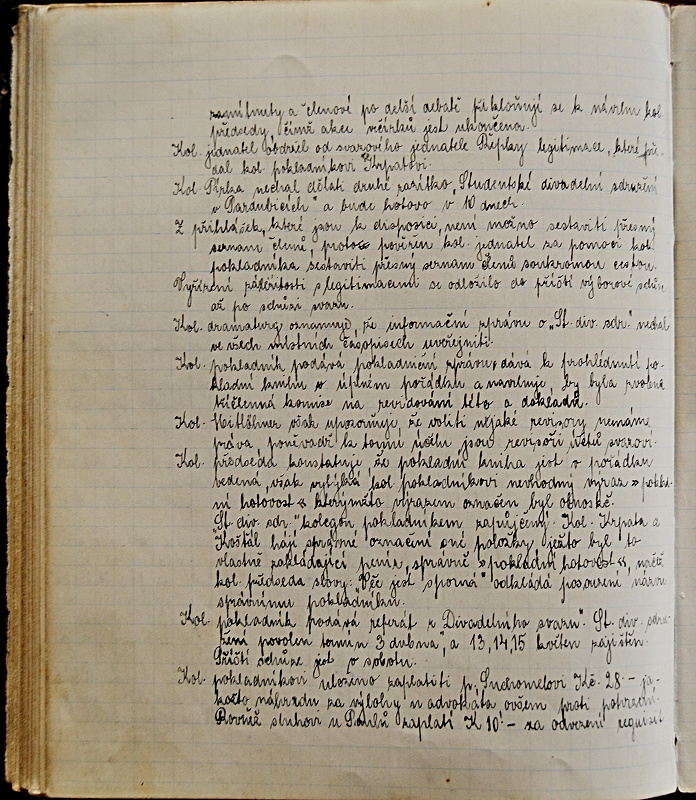 zamítnuty a členové po delší debatě přikloňují se k návrhu kol.
předsedy, čímž akce věnečků jest ukončena.
Kol. jednatel obdržel od svazového jednatele Řepky legitimace, které pře-
dal kol. pokladníkovi Krpatovi.
Kol. nechal dělati druhé razítko „Studentské divadelní sdružení
v Pardubicích" a bude hotovo v 10 dnech.
Z přihlášek, které jsou k disposici, není možno sestaviti přesný
seznam členů, proto pověřen kol. jednatel za pomoci kol.
pokladníka sestaviti přesný seznam členů soukromou cestou.
Vyřízení záležitosti s legitimacemi se odložilo do příští výborové schůze
až po schůzi svazu.
Kol. dramaturg oznamuje, že informační zprávu o „St. div. sdr." nechal
ve všech místních časopisech uveřejniti.
Kol. pokladník podává pokladniční zprávu, dává k prohlédnutí po-
kladní knihu v úplném pořádku a navrhuje, by byla zvolena
tříčlenná komise na revidování této a dokladů.
Kol. však upozorňuje, že voliti nějaké revisory nemáme
práva, poněvadž k tomu účelu jsou revisoři účtů svazoví.
Kol. předseda konstatuje, že pokladní kniha jest v pořádku
vedena, však vytýká kol. pokladníkovi nevhodný výraz » poklad-
ní hotovost « kterýmžto výrazem označen byl obnos Kč.
„St. div. sdr." kolegou pokladníkem zapůjčený. Kol. Krpata a
Košťál hájí správné označení oné položky, ježto byl to
vlastně zakládající peníz, správně » pokladní hotovost «, načež
kol. předseda slovy: „Věc jest sporná" odkládá posouzení názvu
správnímu pokladníku.
Kol. pokladník podává referát z „Divadelního svazu". St. div. sdru-
žení povolen termín 3 dubna, a 13, 14, 15 květen zajištěn.
Příští schůze jest v sobotu.
Kol. pokladníkovi uloženo zaplatiti p. Kč. 28.- ja-
kožto náhradu za výlohy u advokáta, ovšem proti potvrzení.
Rovněž sluhovi u zaplatí K 10'- za odvezení requisit